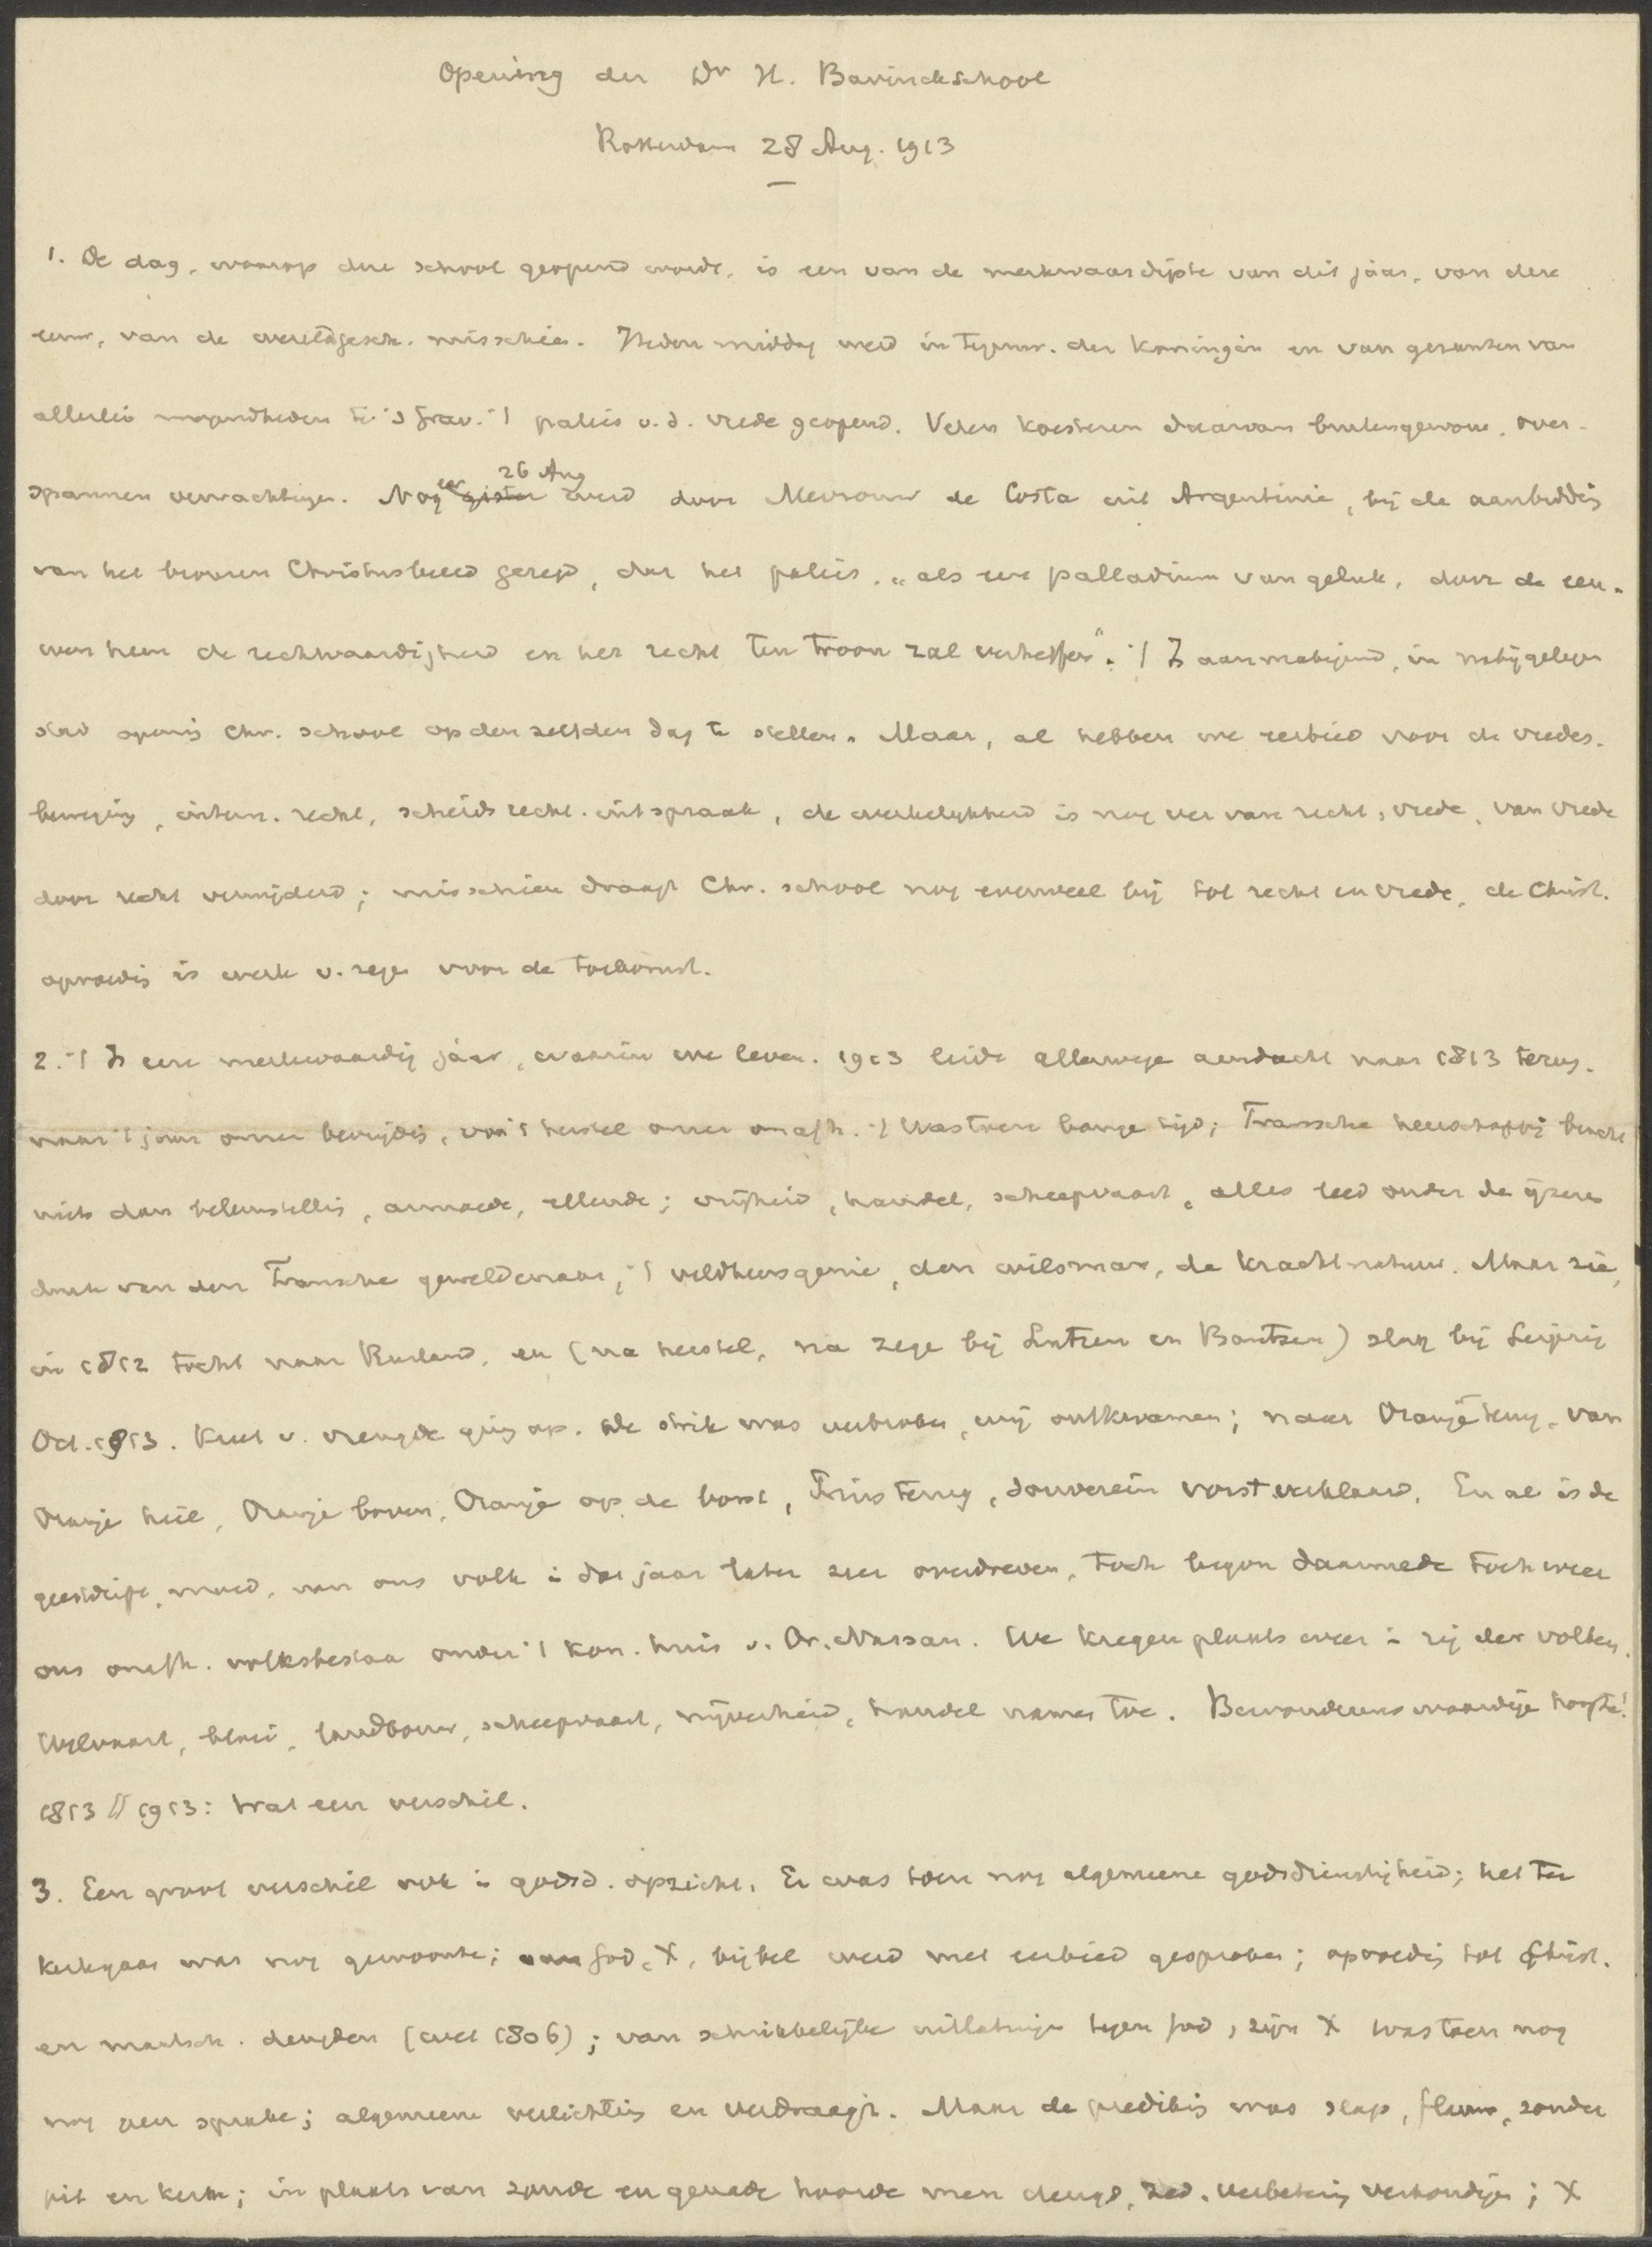 Opening der Dr H. Bavinckschool
Rotterdam 28 Aug. 1913
1. De dag, waarop deze school geopend wordt, is een van de merkwaardigste van dit jaar, van deze
eeuw, van de wereldgesch. misschien. Heden middag werd in tegenw. der Koningin en van gezanten van
allerlei mogendheden te 's Grav. 't paleis v. d. vrede geopend. Velen koesteren daarvan buitengewone, over-
spannen verwachtingen. Nog eer gister 26 Aug werd door Mevrouw de Costa uit Argentinië, bij de aanbieding
van het bronzen Christusbeeld gezegd, dat het paleis, „als een palladium van geluk, door de eeu-
wen heen de rechtvaardigheid en het recht ten troon zal verheffen". 't Is aanmatigend, in nabijgelegen
stad opening Chr. school op denzelfden dag te stellen. Maar, al hebben we eerbied voor de vredes-
beweging, intern. recht, scheidsrecht. uitspraak, de werkelijkheid is nog ver van recht, vrede, van vrede
door recht verwijderd; misschien draagt Chr. school nog evenveel bij tot recht en vrede, de Christ.
opvoedig is werk v. zege voor de toekomst.
2. 't Is een merkwaardig jaar, waarin we leven. 1913 leidt allerwege aandacht naar 1813 terug.
naar 't jaar onzer bevrijdig, van 't herstel onzer onafh. 't Was toen bange tijd; Fransche heerschappij bracht
niets dan teleurstellig, armoede, ellende; vrijheid, handel, scheepvaart, alles leed onder de ijzeren
druk van den Franschen geweldenaar, 't veldheersgenie, den wilsman, de krachtnatuur. Maar zie,
in 1812 tocht naar Rusland, en (na herstel, na zege bij Lutzen en Bautzen) slag bij Leipzig
Oct. 1813. Kreet v. vreugde ging op. De strik was verbroken, wij ontkwamen; naar Oranje terug, van
Oranje heil, Oranje boven, Oranje op de borst, Prins terug, souverein vorst verklaard. En al is de
geestdrift, moed, van ons volk i dat jaar later zeer overdreven, toch begon daarmede toch weer
ons onafh. volksbestaa onder 't Kon. huis v. Or. Nassau. We kregen plaats weer i rij der volken.
Welvaart, bloei, landbouw, scheepvaart, nijverheid, handel namen toe. Bewonderenswaardige hoogte!
1813 // 1913: Wat een verschil.
3. Een groot verschil ook i godsd. opzicht. Er was toen nog algemeene godsdienstigheid; het ter
kerkgaan was nog gewoonte; van God, X, bijbel werd met eerbied gesproken; opvoedig tot Christ.
en maatsch. deugden (wet 1806); van schrikkelijke uitlatinge tegen God, zijn X was toen nog
nog geen sprake; algemeene verlichting en verdraagz. Maar de prediking was slap, flauw, zonder
pit en kern; in plaats van zonde en genade hoorde men deugd, zed. verbetering verkondigen; X